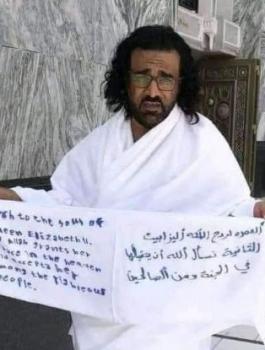 to the soul of
een Elizabeth II.
Allah grants her
ce in the heaven
accepts her
mong the righteous
eople.
العمره لروح الملكه اليزابيت
الثانية نسأل الله أن يتقبلها
في الجنة ومن الصالحين